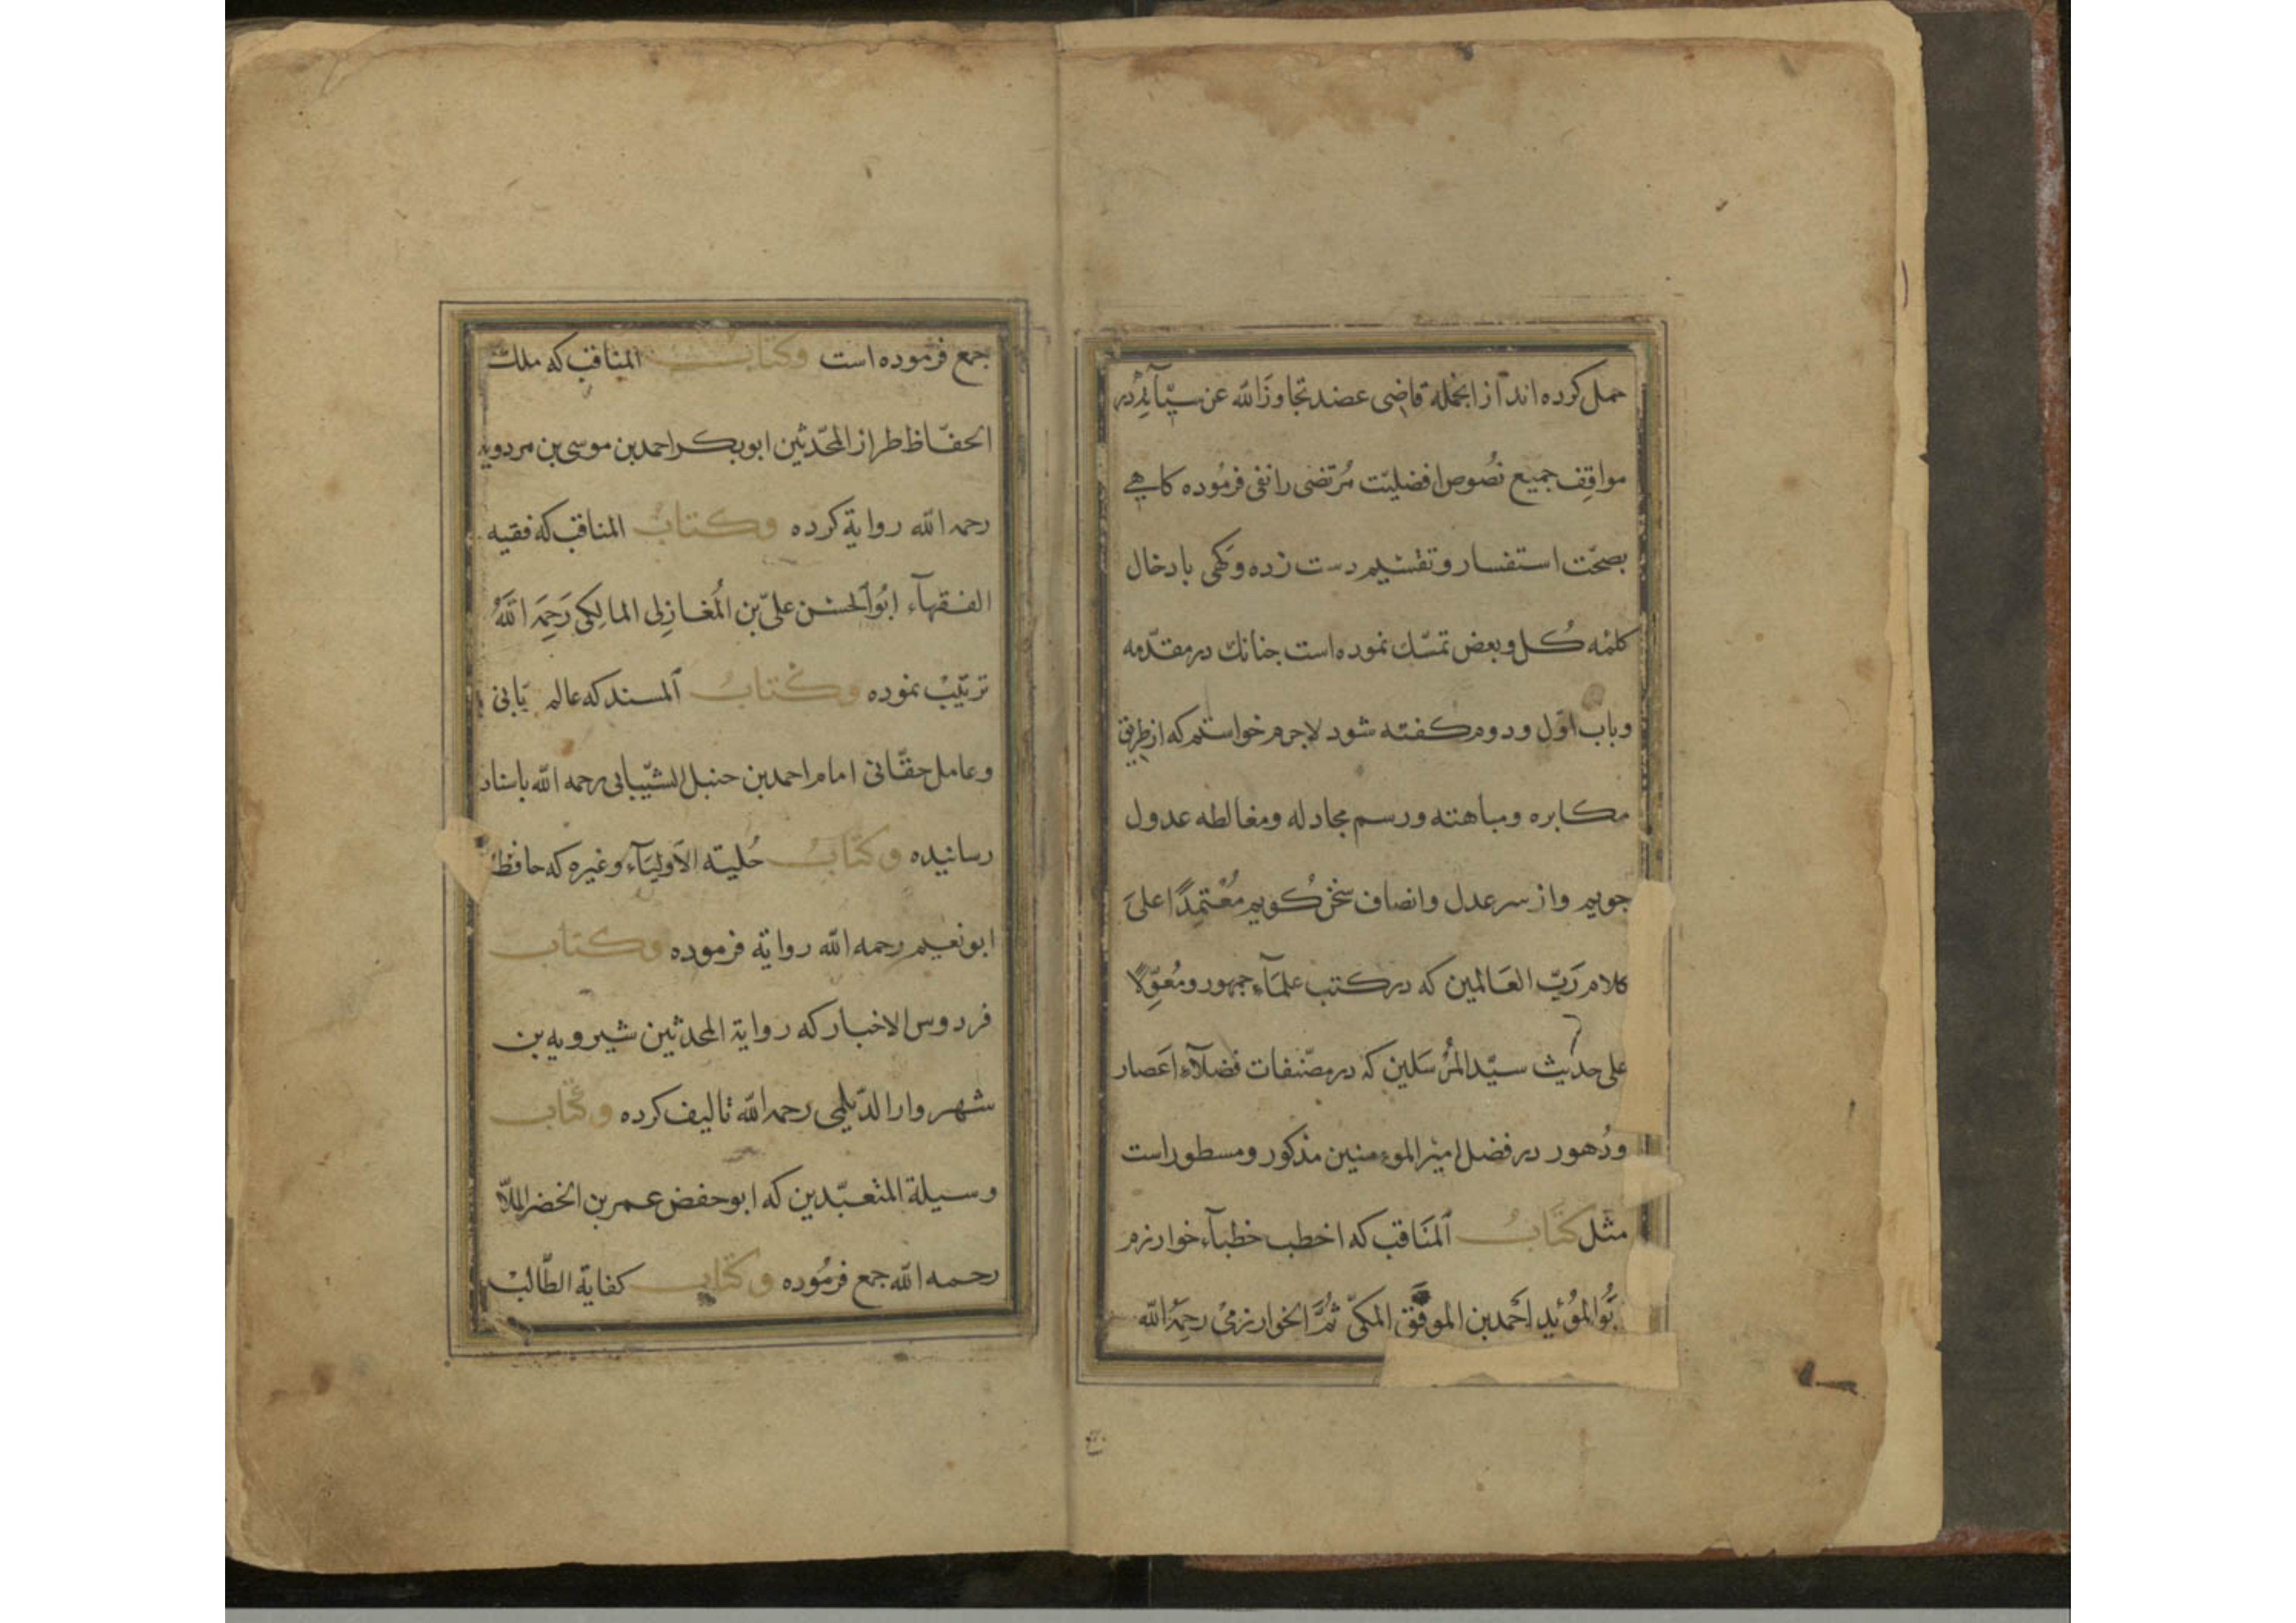 حمل کرده اند از انجمله قاضی عضد تجاوز الله عن سیّآته در
مواقِف جمیع نُصوص افضلیّت مُرتضی را نفی فرمُوده کاهی
بصحّت استفسار و تقسیم دست زده و کهی بادخال
کلمه کُل و بعض تمسّك نموده است جنانك در مقدّمه
و باب اوّل و دوم کفته شود لاجرم خواستم که از طریق
مکابره و مباهته و رسم مجادله و مغالطه عدول
جویم و از سر عدل و انصاف سخن کُویم مُعْتمِدًا علیَ
کلام رَبّ العَالمین که در کتب علمآءِ جمهور و مُعوّلًا
علی حدیث سیّد المُرسَلین که در مصّنفات فضلآءِ اَعصار
و دُهور در فضل امیر الموءمنین مذکور و مسطور است
مثل کتَابُ المنَاقب که اخطب خطبآء خوارزم
بُو المؤید احَمد بن الموفّق المکیّ ثُمَّ الخوارزمیْ رحِمَهُ الله
جمع فرموده است وکتابُ المناقب که ملك
الحفّاظ طراز المحّدثین ابو بکر احمد بن موسی بن مردویه
رحمه الله روایة کرده وکتابُ المناقب که فقیه
الفقهآء ابُو الحسن علیّ بن المُغازِلی المالِکی رَحِمَه اللهُ
ترتیْب نموده وکتابُ المسند که عالم
و عامل حقّانی امام احمد بن حنبل الشّیبانی رحمه الله باسناد
رسانیده وکتابُ حُلیته الاَولیَآء و غیره که حافظ
ابو نعیم رحمه الله روایة فرموده وکتاب
فردوس الاخبار که روایة المحدثین شیرویه بن
شهروار الدّیلمی رحمه الله تالیف کرده وکتاب
وسیلة المتعبّدین که ابو حفض عمر بن الخضر الملّا
رحمه الله جمع فرمُوده وکتاب کفایة الطّالبْ